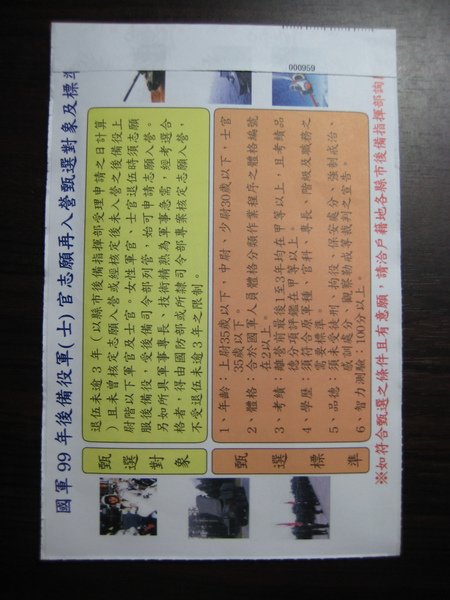 000959
國軍 99 年後備役軍(士)官志願再入營甄選對象及標準
甄選對象
退伍未逾 3 年（以縣市後備指揮部受理申請之日計算
）且未曾核定志願入營或經核定後未入營之後備役上
尉階以下軍官及士官。女性軍官、士官退伍時須志願
服後備役，受後備司令部列管，始可申請志願入營。
另如所具軍事專長、技術精熟為軍事急需，經考選合
格者，得由國防部或所隸司令部專案核定志願入營，
不受退伍未逾 3 年之限制。
甄選標準
1、年齡：上尉35歲以下，中尉、少尉30歲以下，士官
35歲以下。
2、體格：合於國軍人員體格分類作業程序之體格編號
在2以上。
3、考績：離營前最後1至3年均在甲等以上，且考績品
德分項評鑑在甲等以上。
4、學歷：須符合原軍種、官科、專長、階級及職務之
需要標準。
5、品德：須未受徒刑、拘役、保安處分、強制戒治、
感訓處分、觀察勒戒等裁判之宣告。
6、智力測驗：100分以上。
※如符合甄選之條件且有意願，請洽戶籍地各縣市後備指揮部詢